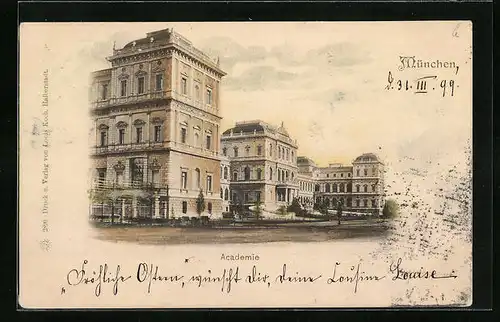 München,
d. 31. III. 99.
286 Druck u. Verlag von Louis Koch, Halberstadt.
Academie
„Fröhliche Ostern", wünscht Dir, Deine Cousine Louise